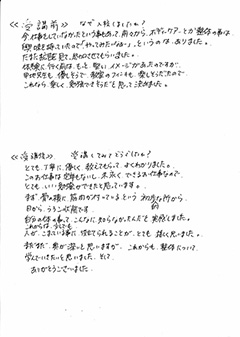 ≪受講前≫ なぜ入校しましたか?
今仕事もしていなかったという事もあって、前々から、ボディケアーとか整体の事は
興味を持っていたので「やってみたいなぁ。」というのはありました。
たまたま紹介見て、見学させてもらいました。
体験に行く前は、もっと堅いイメージがあったのですが
学校先生も優しそうで、教室のフインキも、楽しそうだったので
これなら、楽しく勉強できそうだと思って決めました。
≪受講後≫ 受講してみてどうでしたか?
とても、丁寧に、優しく、教えてもらってよくわかりました。
このお仕事は定年もないし、末永くできるお仕事なので、
とても、いい勉強ができたと思っています。
まず、骨の横に、筋肉が付いているという初歩的な所から
目から、ウロコ状態です。
自分の体の事って、こんなに知らなかったんだと実感しました。
これからは、少しでも
人が、こまっている事に役立てられることが、とても嬉しく思いました。
まだまだ、奥が深いと思いますが、これからも、整体について
学んでいきたいと思いました。そして
ありがとうございました。